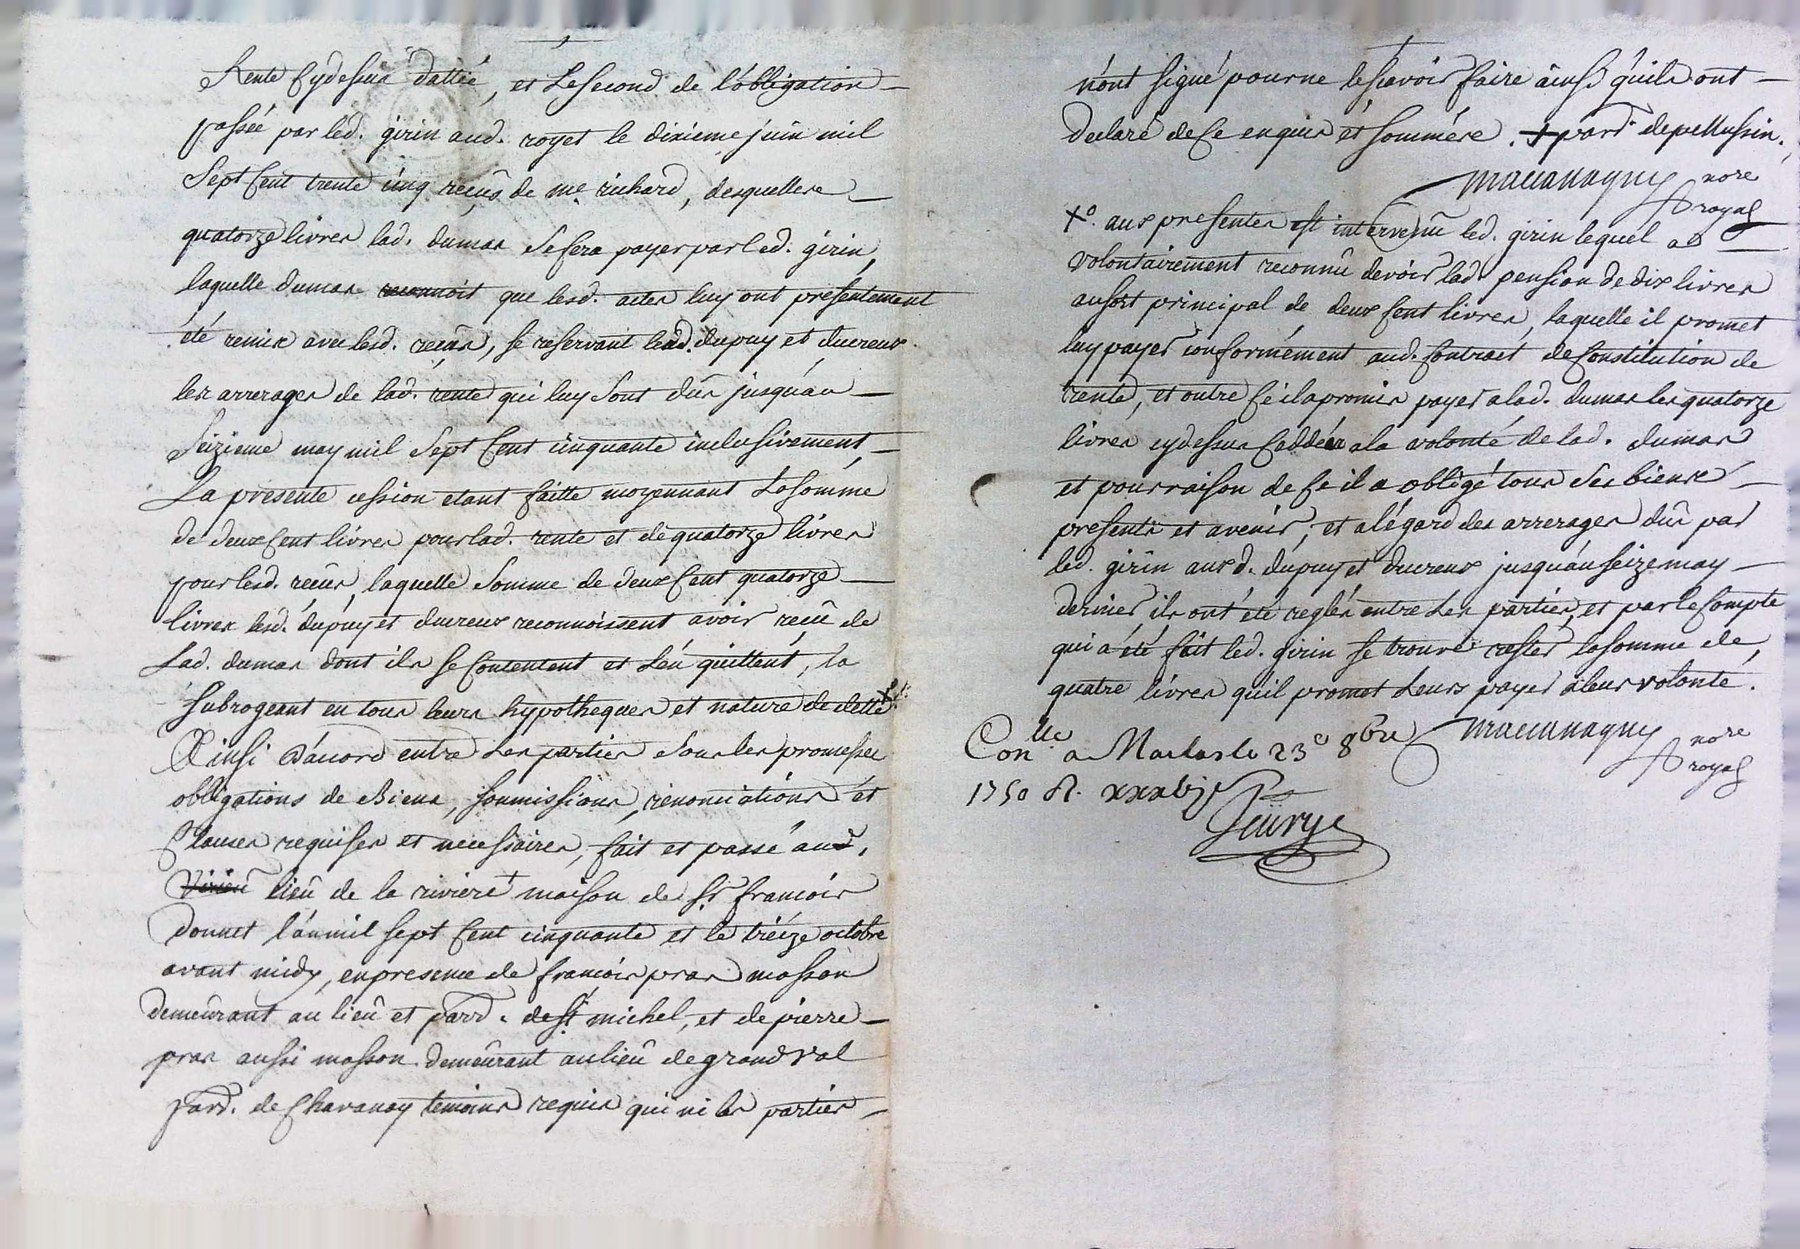 Rente cy dessus dattée, et le second de l'obligation
passée par led. girin aud. royet le dixieme juin mil
sept cent trente cinq reçûs de me. richard, desquelles
quatorze livres lad. dumas se fera payer par led. girin,
laquelle dumas reconnoit que lesd. actes luy ont présentement
été remis avec lesd. reçûs, se reservant lesd. dupuy et ducreux
les arrerages de lad. rente qui luy sont dûs jusqu'au
seizieme may mil sept cent cinquante inclusivement,
La présente cession etant faitte moyennant la somme
de deux cent livres pour lad. rente et de quatorze livres
pour lesd. reçûs, laquelle somme de deux cent quatorze
livres lesd. dupuy et ducreux reconnoissent avoir reçû de
Lad. dumas dont ils se contentent et l'en quittent, la
subrogeant en tous leurs hypotheques et nature de dette
Ainsi d'acord entre les parties sous les promesses
obligations de Biens, soumissions, renonciations et
Clauses requises et necessaires, fait et passé aud.
lieû de la riviere + maison de sr. francois
donnet l'an mil sept cent cinquante et le treize octobre
avant midy, en presence de francois pras masson
demeurant au lieû et parr. de st. michel, et de pierre
pras aussi masson demeurant au lieû de grand val
parr. de Chavanay temoins requis qui ni les parties
n'ont signé pour ne le scavoir faire ainsi qu'ils ont
declaré de ce enquis et sommés. + parr. de pellussin.
nore
royal
+o. aux presentes est intervenû led. girin lequel a
volontairement reconnû devoir lad. pension de dix livres
au sort principal de deux cent livres, laquelle il promet
luy payer conformément aud. contract de constitution de
rente, et outre ce il a promis payer a lad. dumas les quatorze
livres cy dessus ceddées a la volonté de lad. dumas
et pour raison de ce il a obligé tous ses biens
presents et avenir, et a l'égard des arrerages dûs par
led. girin auxd. dupuy et ducreux jusqu'au seize may
dernier, ils ont été reglés entre les parties, et par le compte
qui a été fait led. girin se trouve rester la somme de
quatre livres qu'il promet leurs payer a leur volonté.
nore
royal
Conlle a Maclas le 23e 8bre
1750 R. xxxvj s